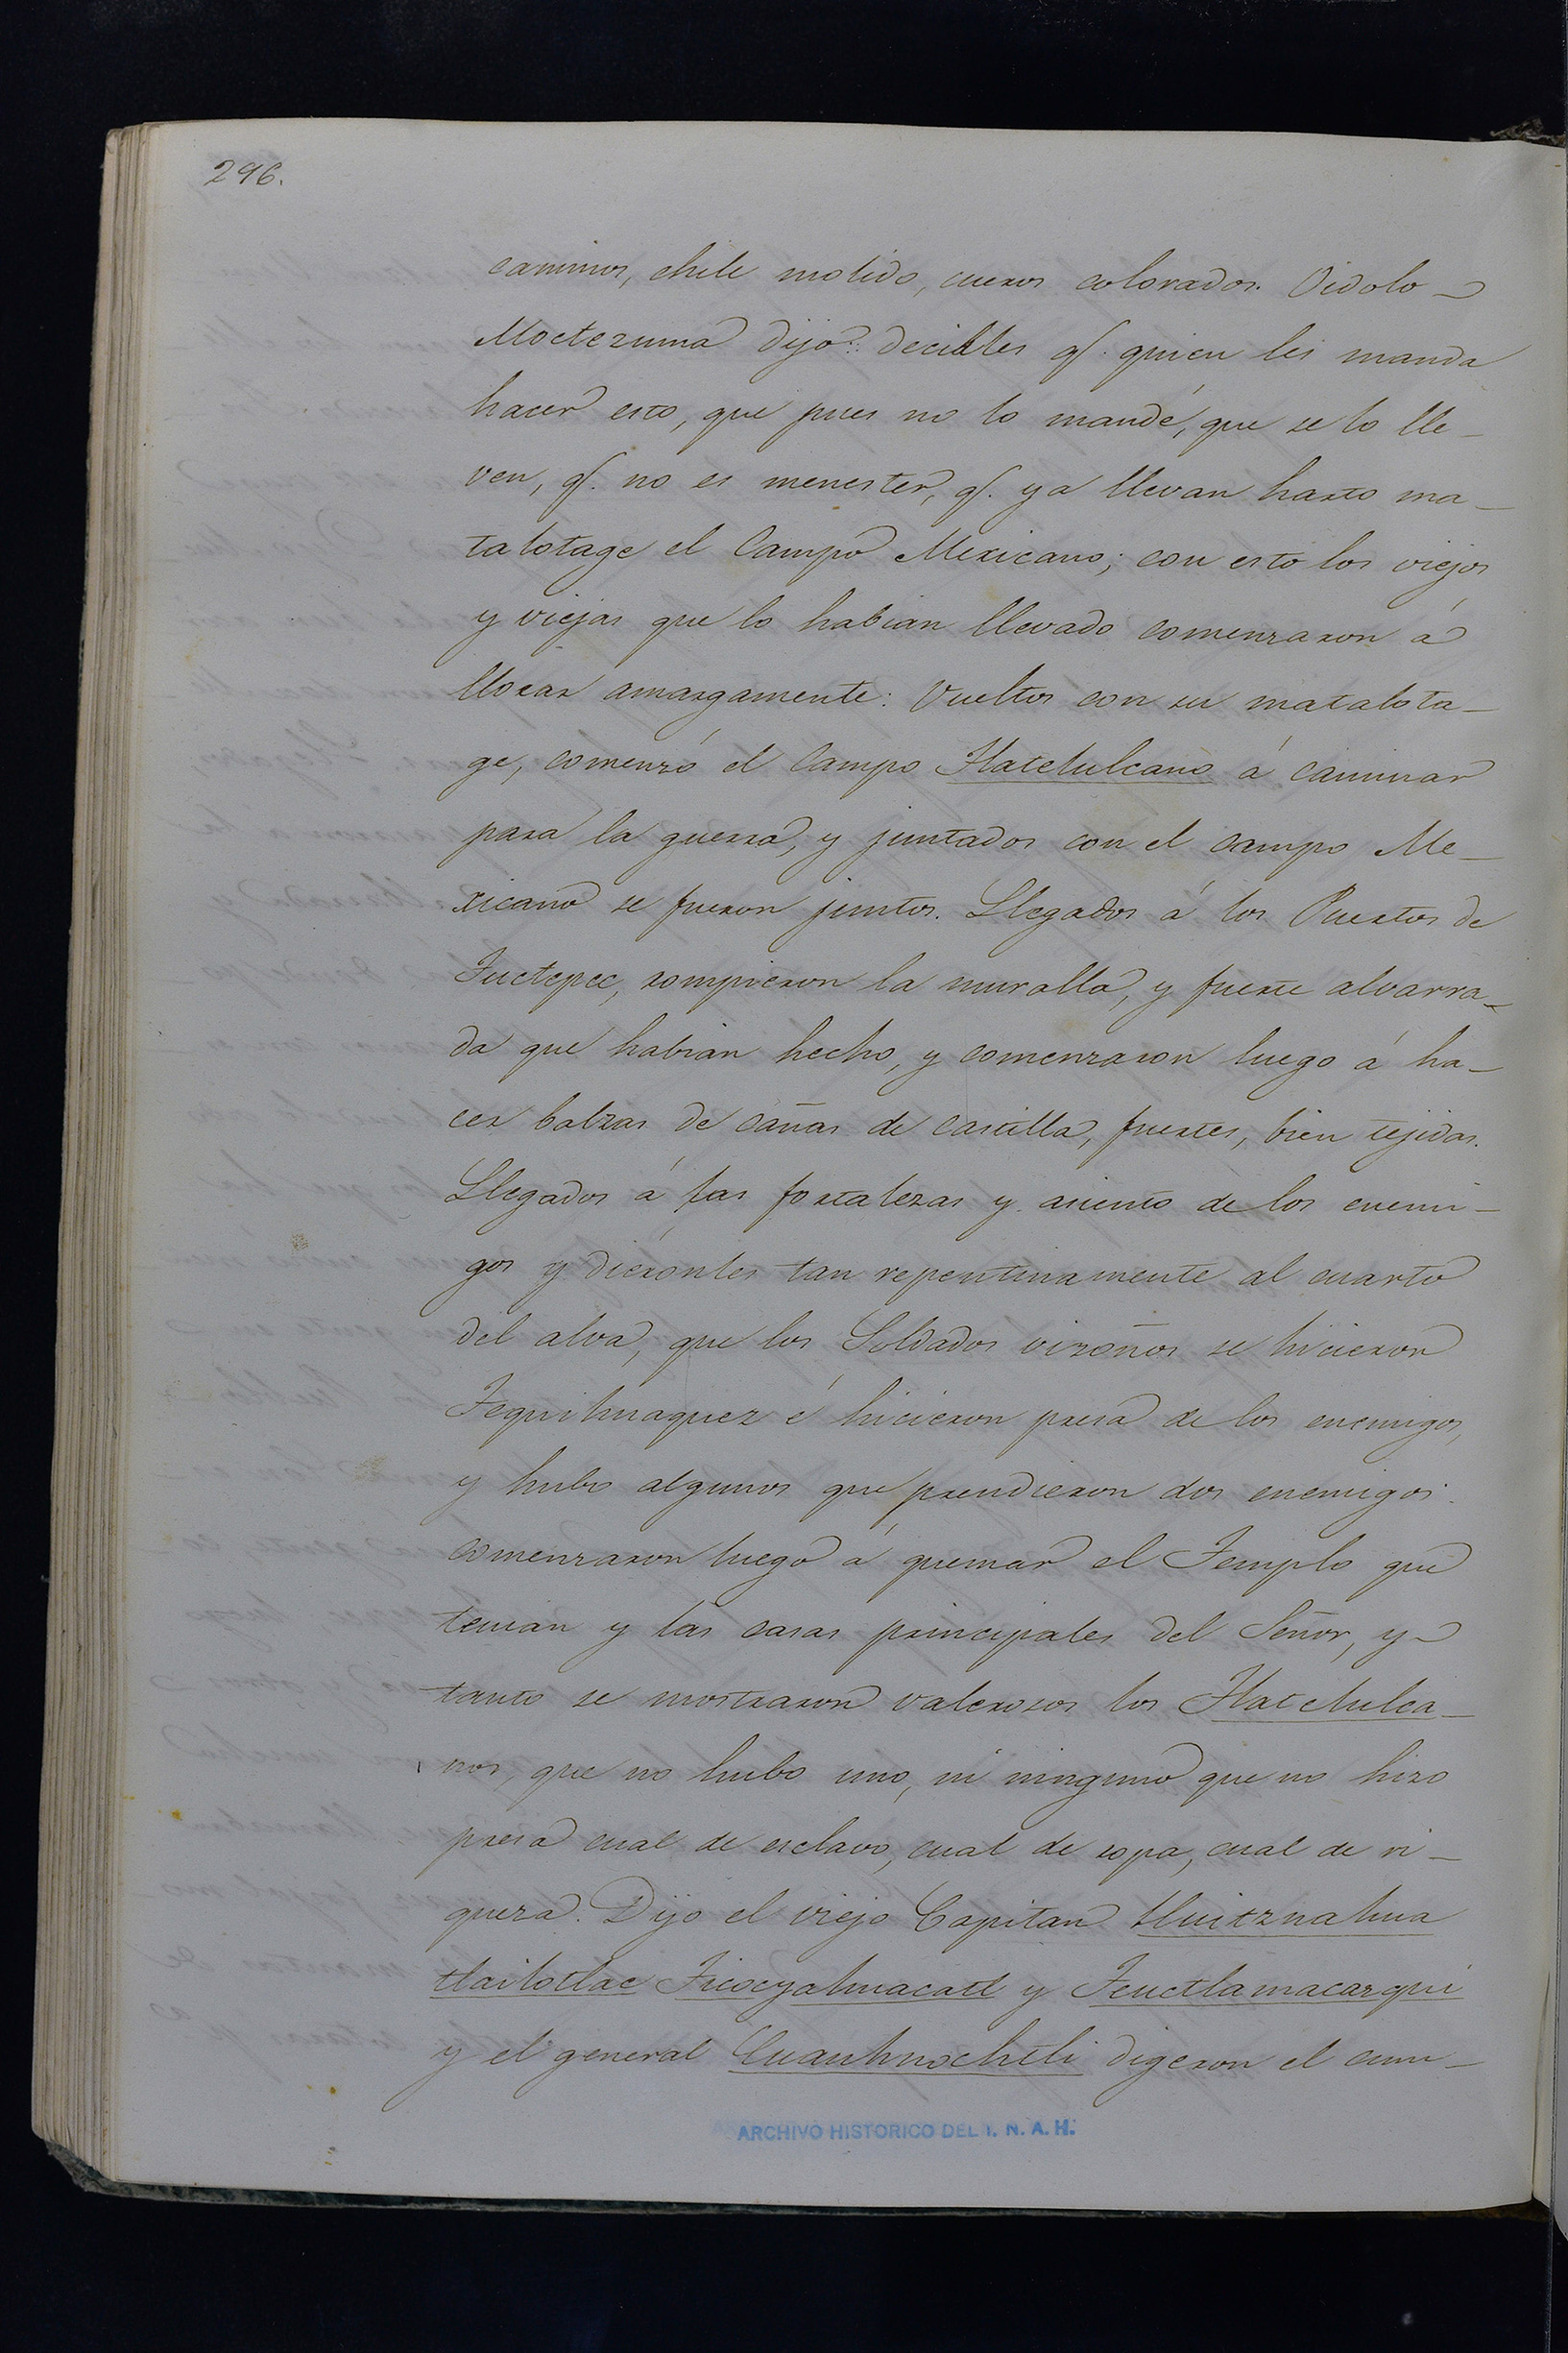 296.
caminos, chile molido, cueros colorados. Oidolo
Moctezuma dijo: decilles q. quien les manda
hacer esto, que pues no lo mandé, que se lo lle-
ven, q. no es menester, q. ya llevan harto ma-
talotage el Campo Mexicano; con esto los viejos
y viejas que lo habian llevado comenzaron á
llorar amargamente: Vueltos con su matalota-
ge, comenzó el Campo Tlatelulcano á caminar
para la guerra, y juntados con el campo Me-
xicano se fueron juntos. Llegados á los Puertos de
Tuctepec, rompieron la muralla, y fuerte alvarra-
da que habian hecho, y comenzaron luego á ha-
cer balzas de cañas de castilla, fuertes, bien tejidas.
Llegados á las fortalezas y asiento de los enemi-
gos y dieronles tan repentinamente al cuarto
del alva, que los Soldados vizoños se hicieron
Tequihuaquez é hicieron presa de los enemigos,
y hubo algunos que prendieron dos enemigos.
comenzaron luego á quemar el Templo que
tenian y las casas principales del Señor, y
tanto se mostraron valerosos los Tlatelulca-
nos, que no hubo uno, ni ninguno que no hizo
presa cual de esclavo, cual de ropa, cual de ri-
queza. Dijo el viejo Capitan Huitznahua
tlailotlac Ticocyahuacatl y Teuctlamacazqui
y el general Cuauhnochtli digeron el cum-
ARCHIVO HISTORICO DEL I. N. A. H.